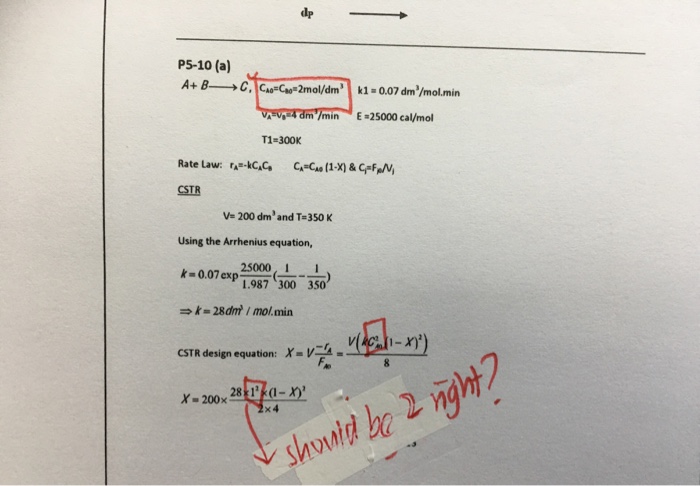 dp
P5-10 (a)
A+ B⟶C, C_A0=C_B0=2mol/dm³ k1 = 0.07 dm³/mol.min
V_A=V_B=4 dm³/min E =25000 cal/mol
T1=300K
Rate Law: r_A=-kC_AC_B C_A=C_A0 (1-X) & C_j=F_j0/V_j
CSTR
V= 200 dm³ and T=350 K
Using the Arrhenius equation,
k = 0.07 exp 25000/1.987 (1/300 − 1/350)
⇒ k = 28dm³ / mol.min
CSTR design equation: X = V −r_A/F_A0 = V(kC²_A0(1−X)²)/8
X = 200× 28×1²×(1−X)²/2×4
should be 2 right?